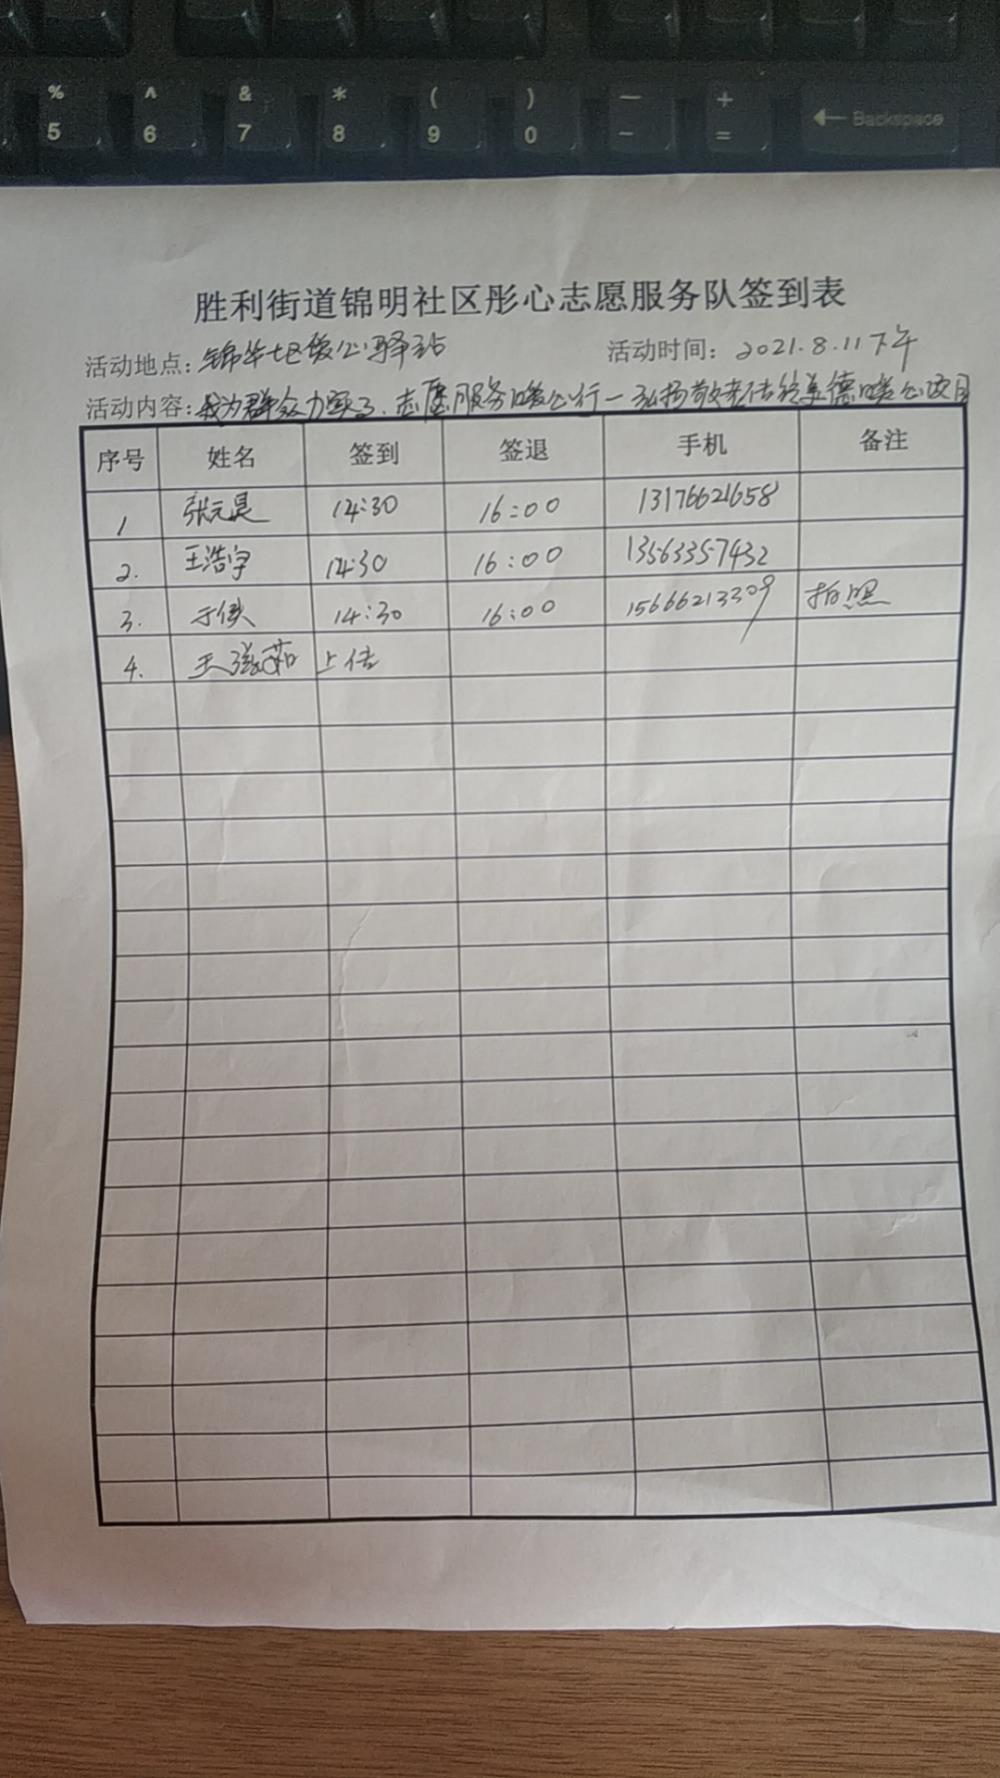 % ^ & * ( ) — +
5 6 7 8 9 0 - = Backspace
胜利街道锦明社区彤心志愿服务队签到表
活动地点：锦华社区暖心驿站 活动时间：2021.8.11下午
活动内容：我为群众办实事.志愿服务暖心行—弘扬敬老传统美德暖心项目
序号 姓名 签到 签退 手机 备注
1 张元昊 14:30 16:00 13176621658
2. 王浩宇 14:30 16:00 13563357432
3. 于侠 14:30 16:00 15666213309 拍照
4. 王 上传